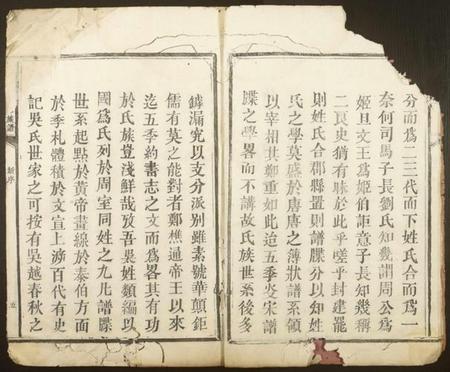 分而爲二三代而下姓氏合而爲一
奈何司馬子長劉氏知幾謂周公爲
姬旦文王爲姬伯詎意子長知幾稱
二良史猶有昧於此乎嗟乎封建罷
則姓氏合郡縣置則譜牒分以知姓
氏之學莫盛於唐唐之薄狀譜系領
以宰相其鄭重如此迨五季炎宋譜
牒之學畧而不講故氏族世系後多
罅漏宄以支分派别雖素號華顛鉅
儒有莫之能對者鄭樵通帝王以來
迄五季約書志之文而爲畧其有功
於氏族豈淺鮮哉攷吾吳姓類編以
國爲氏列於周室同姓之九凡譜牒
世系起點於黄帝畫線於泰伯方面
於季札體積於文宣上游百代有史
記吳氏世家之可按有吳越春秋之
族譜 新序